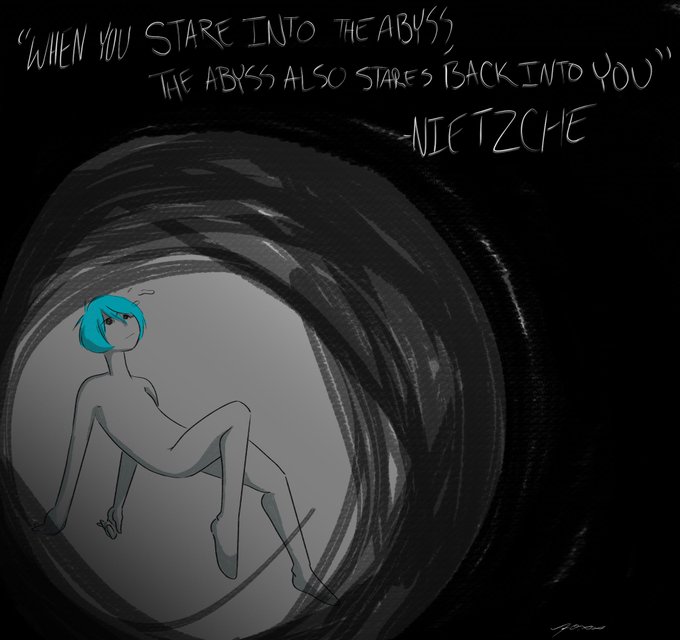 "WHEN YOU STARE INTO THE ABYSS,
THE ABYSS ALSO STARES BACK INTO YOU"
-NIETZCHE